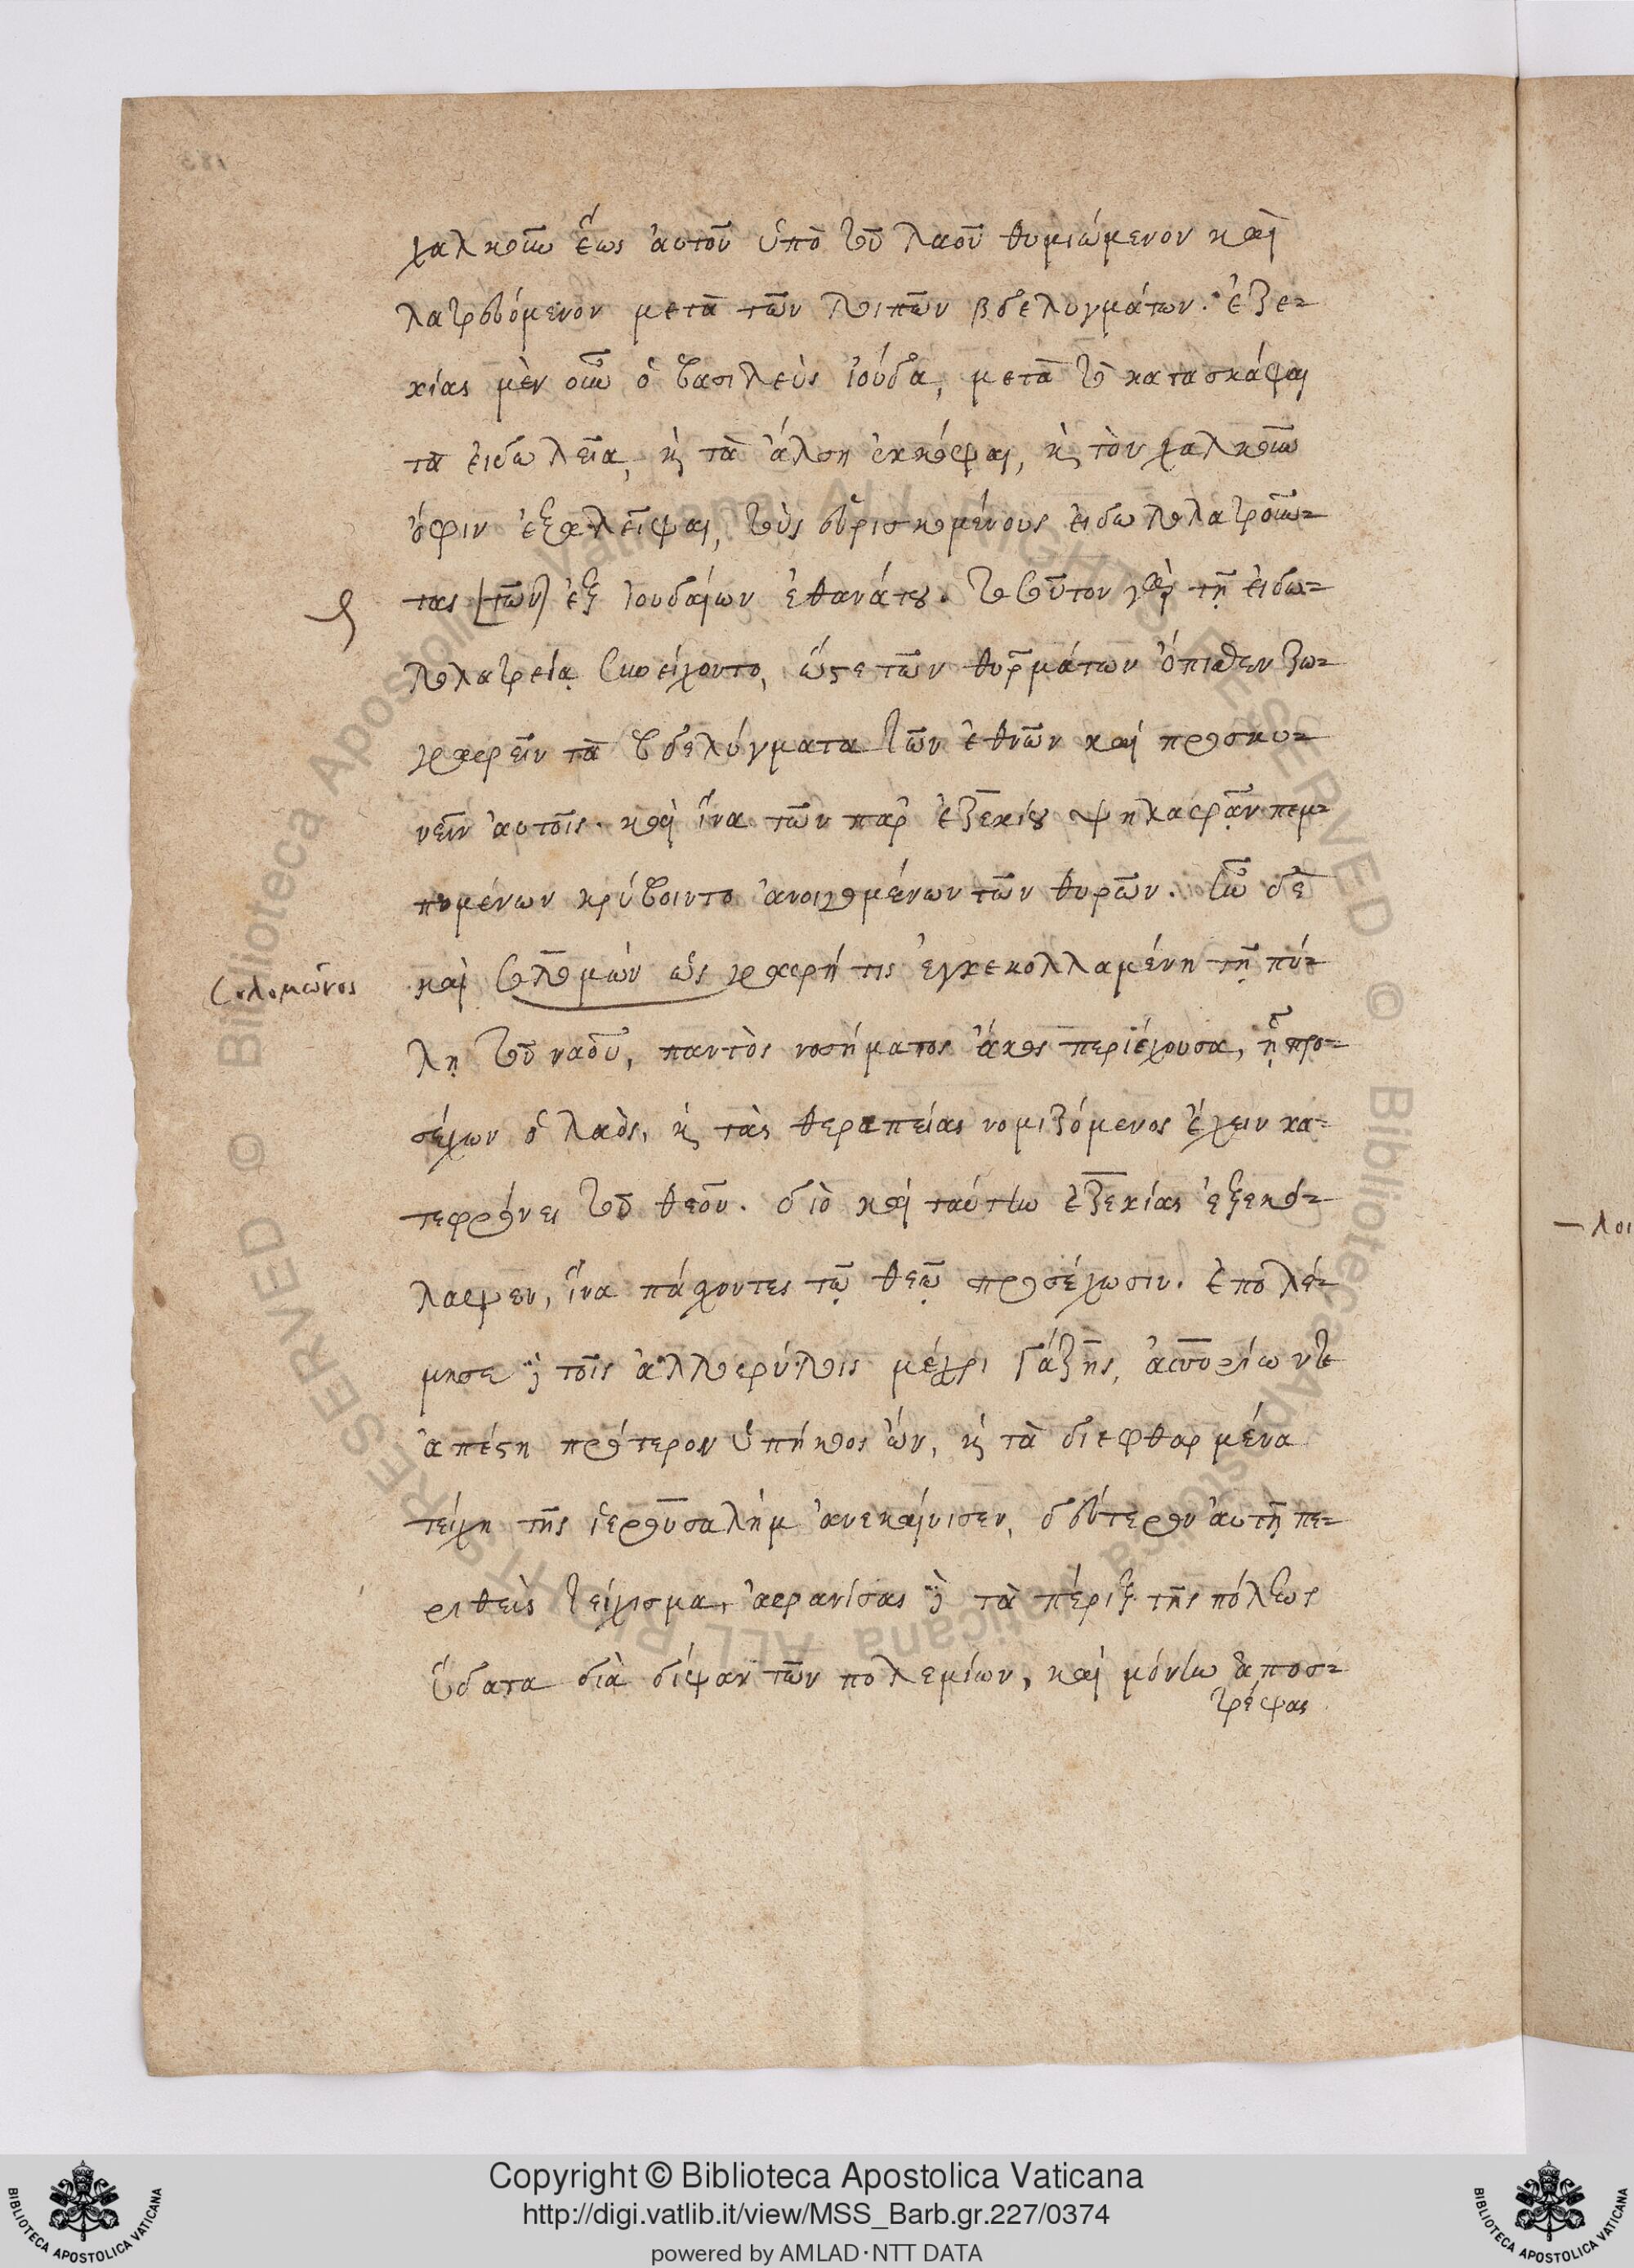 χαλκοῦν ἕως αὐτοῦ ὑπὸ τοῦ λαοῦ θυμιώμενον καὶ
λατρευόμενον μετὰ τῶν λοιπῶν βδελυγμάτων. ἐζε-
κίας μὲν οὖν ὁ βασιλεὺς ἰούδα, μετὰ τὸ κατασκάψαι
τὰ εἰδωλεῖα, κὶ τὰ ἄλση ἐκκόψαι, κὶ τὸν χαλκοῦν
ὄφιν ἐξαλεῖψαι, τοὺς εὑρισκομένους εἰδωλολατροῦν-
τας [τῶν] ἐξ Ἰουδαίων ἐθανάτου. τοσοῦτον γὰρ τῇ εἰδω-
λολατρείᾳ ἐνείχοντο, ὥστε τῶν θυρωμάτων ὄπισθεν ζω-
γραφεῖν τὰ βδελύγματα τῶν ἐθνῶν καὶ προσκυ-
νεῖν αὐτοῖς. καὶ ἵνα τῶν παρ' ἐζεκίου ψηλαφᾶν πεμ-
πομένων κρύβοιντο ἀνοιγομένων τῶν θυρῶν. ἦν δὲ
καὶ σολομὼν ὡς γραφή τις ἐγκεκολλαμένη τῇ πύ-
λῃ τοῦ ναοῦ, παντὸς νοσήματος ἄκος περιέχουσα, ᾗ προ-
σέχων ὁ λαὸς, κὶ τὰς θεραπείας νομιζόμενος ἔχειν κα-
τεφρόνει τοῦ θεοῦ. διὸ καὶ ταύτην ἐζεκίας ἐξεκό-
λαψεν, ἵνα πάσχοντες τῷ θεῷ προσέχωσιν. ἐπολέ-
μησε δὲ τοῖς ἀλλοφύλοις μέχρι Γάζης, ἀσσυρίων τε
ἀπέστη πρότερον ὑπήκοος ὤν, κὶ τὰ διεφθαρμένα
τείχη τῆς ἱερουσαλὴμ ἀνεκαίνισεν, δεύτερον αὐτῇ πε-
ριθεὶς τείχισμα, ἀφανίσας δὲ τὰ πέριξ τῆς πόλεως
ὕδατα διὰ δίψαν τῶν πολεμίων, καὶ μόνην ἀποσ-
τρέψας
Σολομῶνος
Copyright © Biblioteca Apostolica Vaticana
http://digi.vatlib.it/view/MSS_Barb.gr.227/0374
powered by AMLAD·NTT DATA